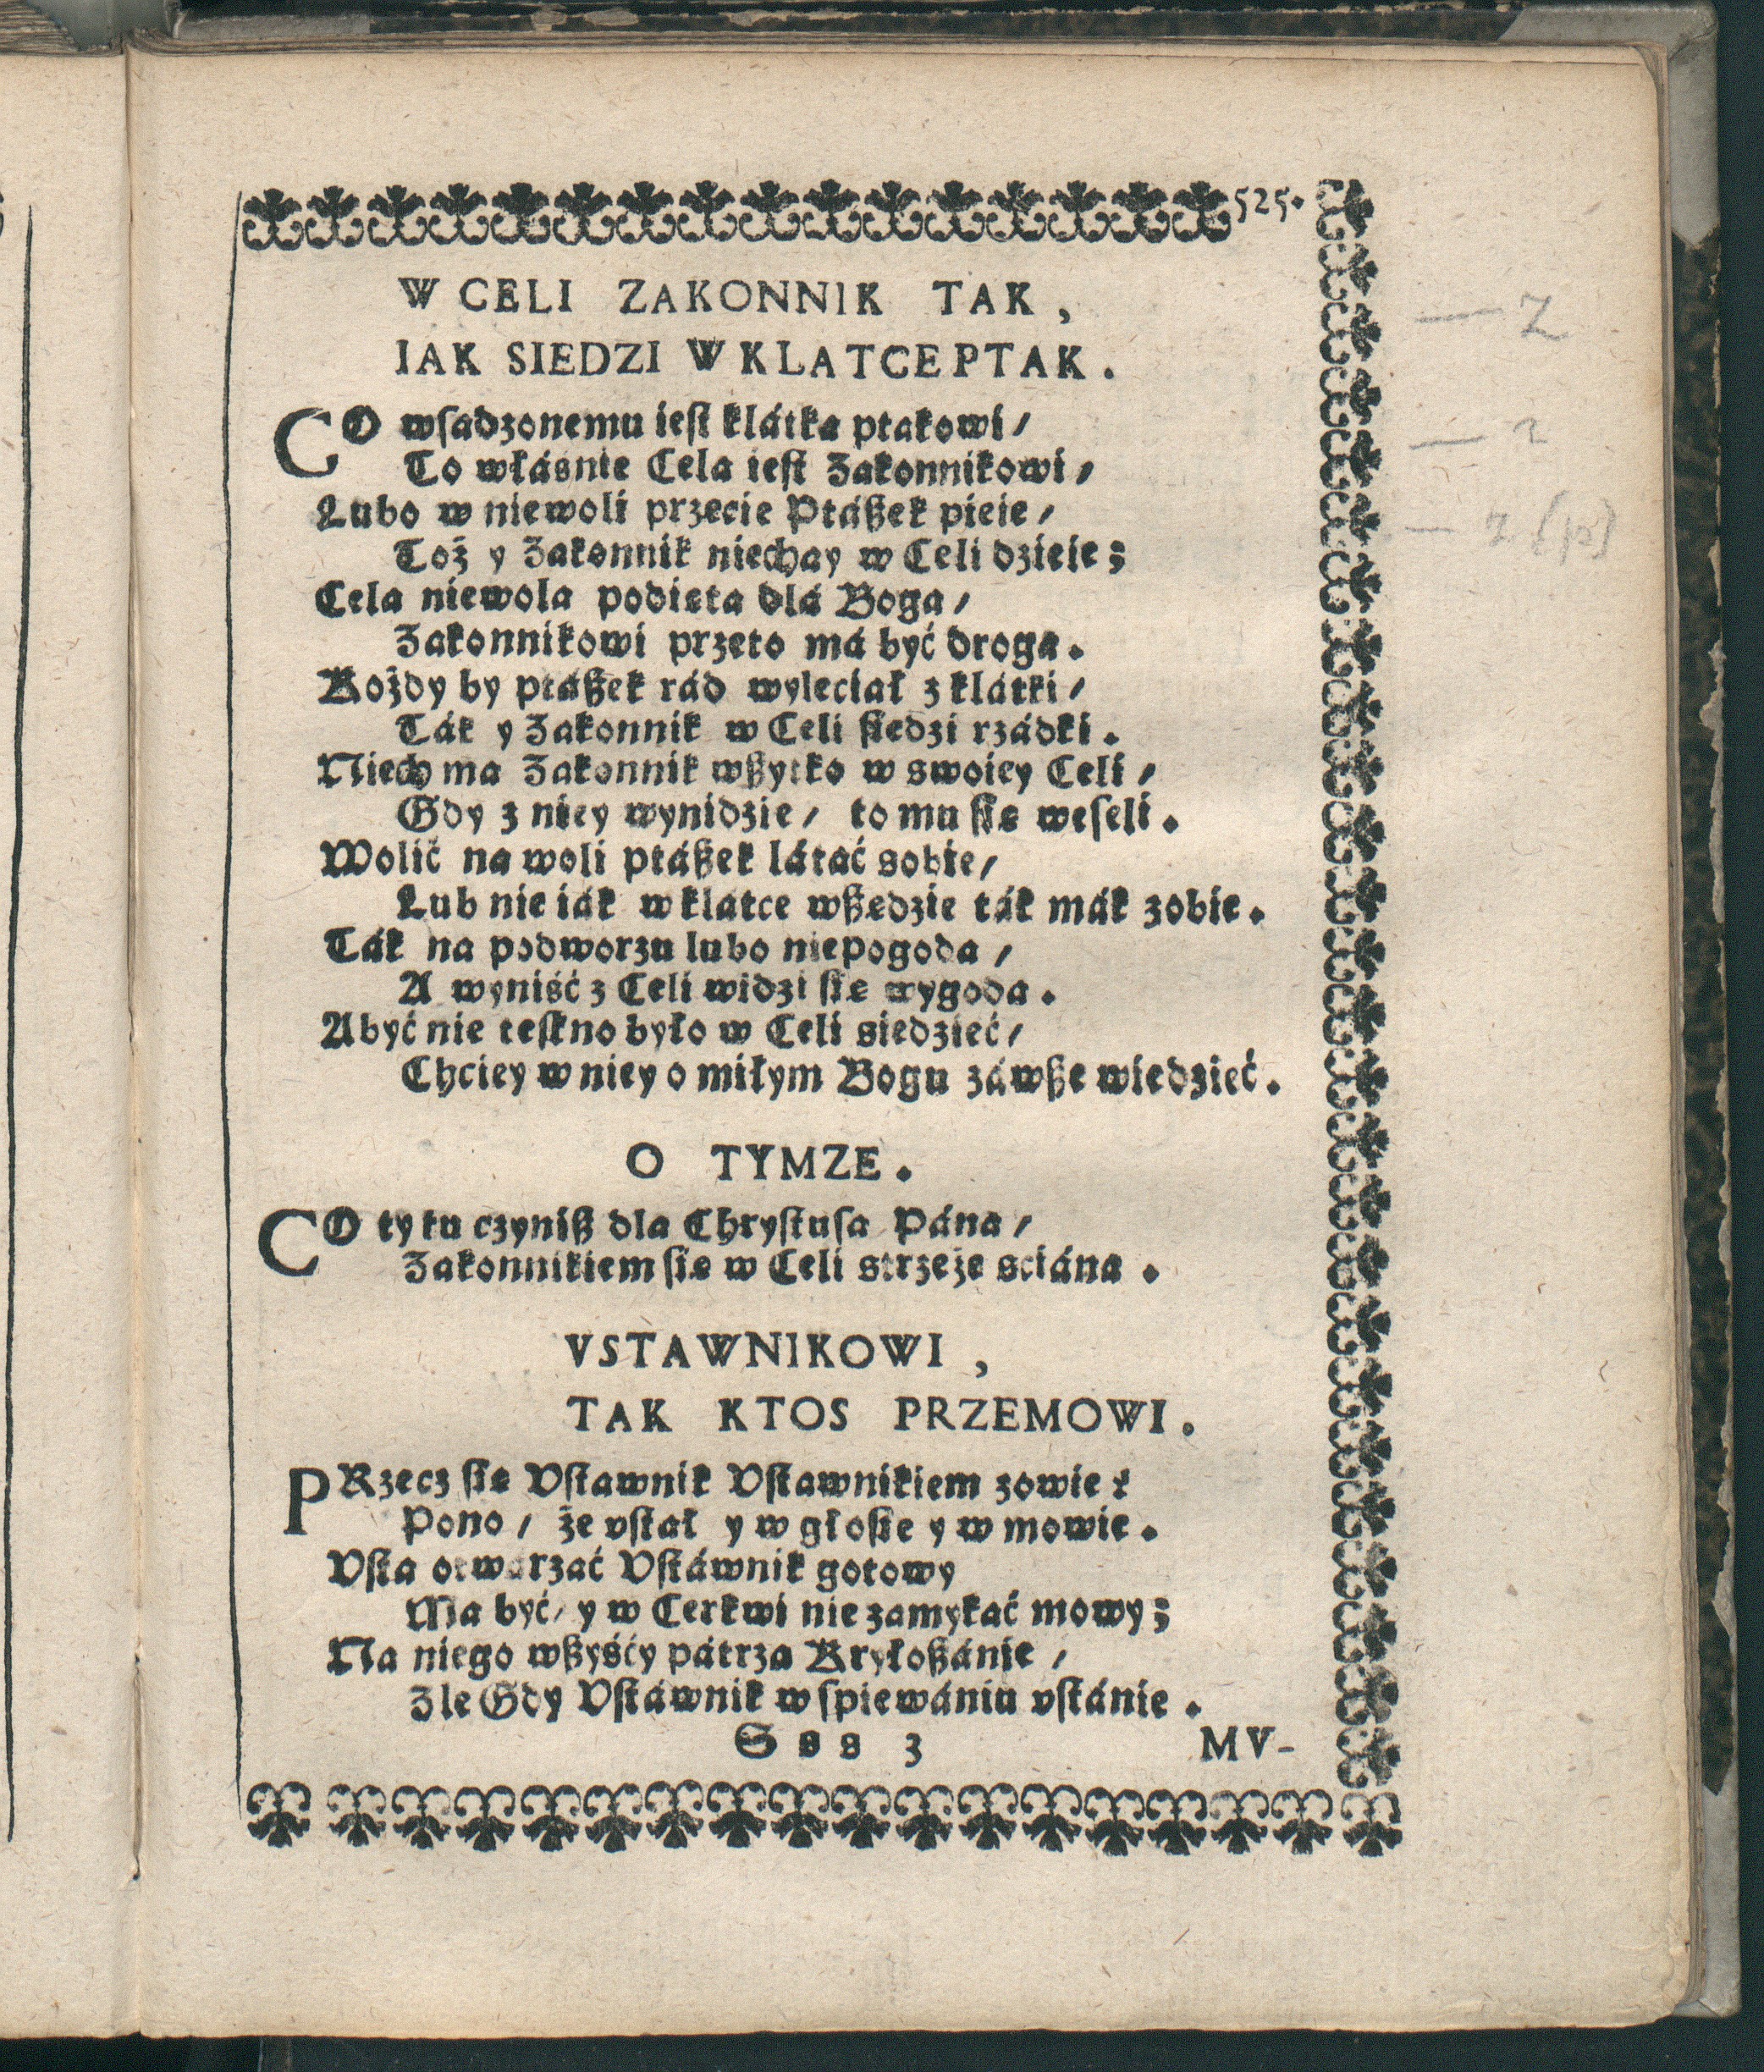 525.
W CELI ZAKONNIK TAK,
IAK SIEDZI W KLATCE PTAK.
CO wſadzonemu ieſt klátka ptakowi/
To włásnie Cela ieſt Zakonnikowi/
Lubo w niewoli przecie Ptáßek pieie/
Toż y Zakonnik niechay w Celi dzieie;
Cela niewola podięta dlá Boga/
Zakonnikowi przeto má być droga.
Kożdy by ptáßek rád wyleciał z klátki/
Ták y Zakonnik w Celi ſiedzi rzádki.
Niech ma Zakonnik wßytko w swoiey Celi/
Gdy z niey wynidzie/ to mu ſię weſeli.
Wolić na woli ptáßek látać sobie/
Lub nie iák w klatce wßędzie ták mák zobie.
Ták na podworzu lubo niepogoda/
A wyniść z Celi widzi ſię wygoda.
Abyć nie teſkno było w Celi siedzieć/
Chciey w niey o miłym Bogu záwße wiedzieć.
O TYMZE.
CO ty tu czyniß dla Chryſtuſa Pána/
Zakonnikiem ſię w Celi strzeże sciána.
VSTAWNIKOWI,
TAK KTOS PRZEMOWI.
PRzecz ſię Vſtawnik Vſtawnikiem zowie?
Pono/ że vſtał y w głoſie y w mowie.
Vſta otwarzać Vſtáwnik gotowy
Ma być/ y w Cerkwi nie zamykać mowy;
Na niego wßyśćy pátrza Kryłoßánie/
Zle Gdy Vſtáwnik w spiewániu vſtánie.
Sss 3
MV-
— Z
— z
— z (p)